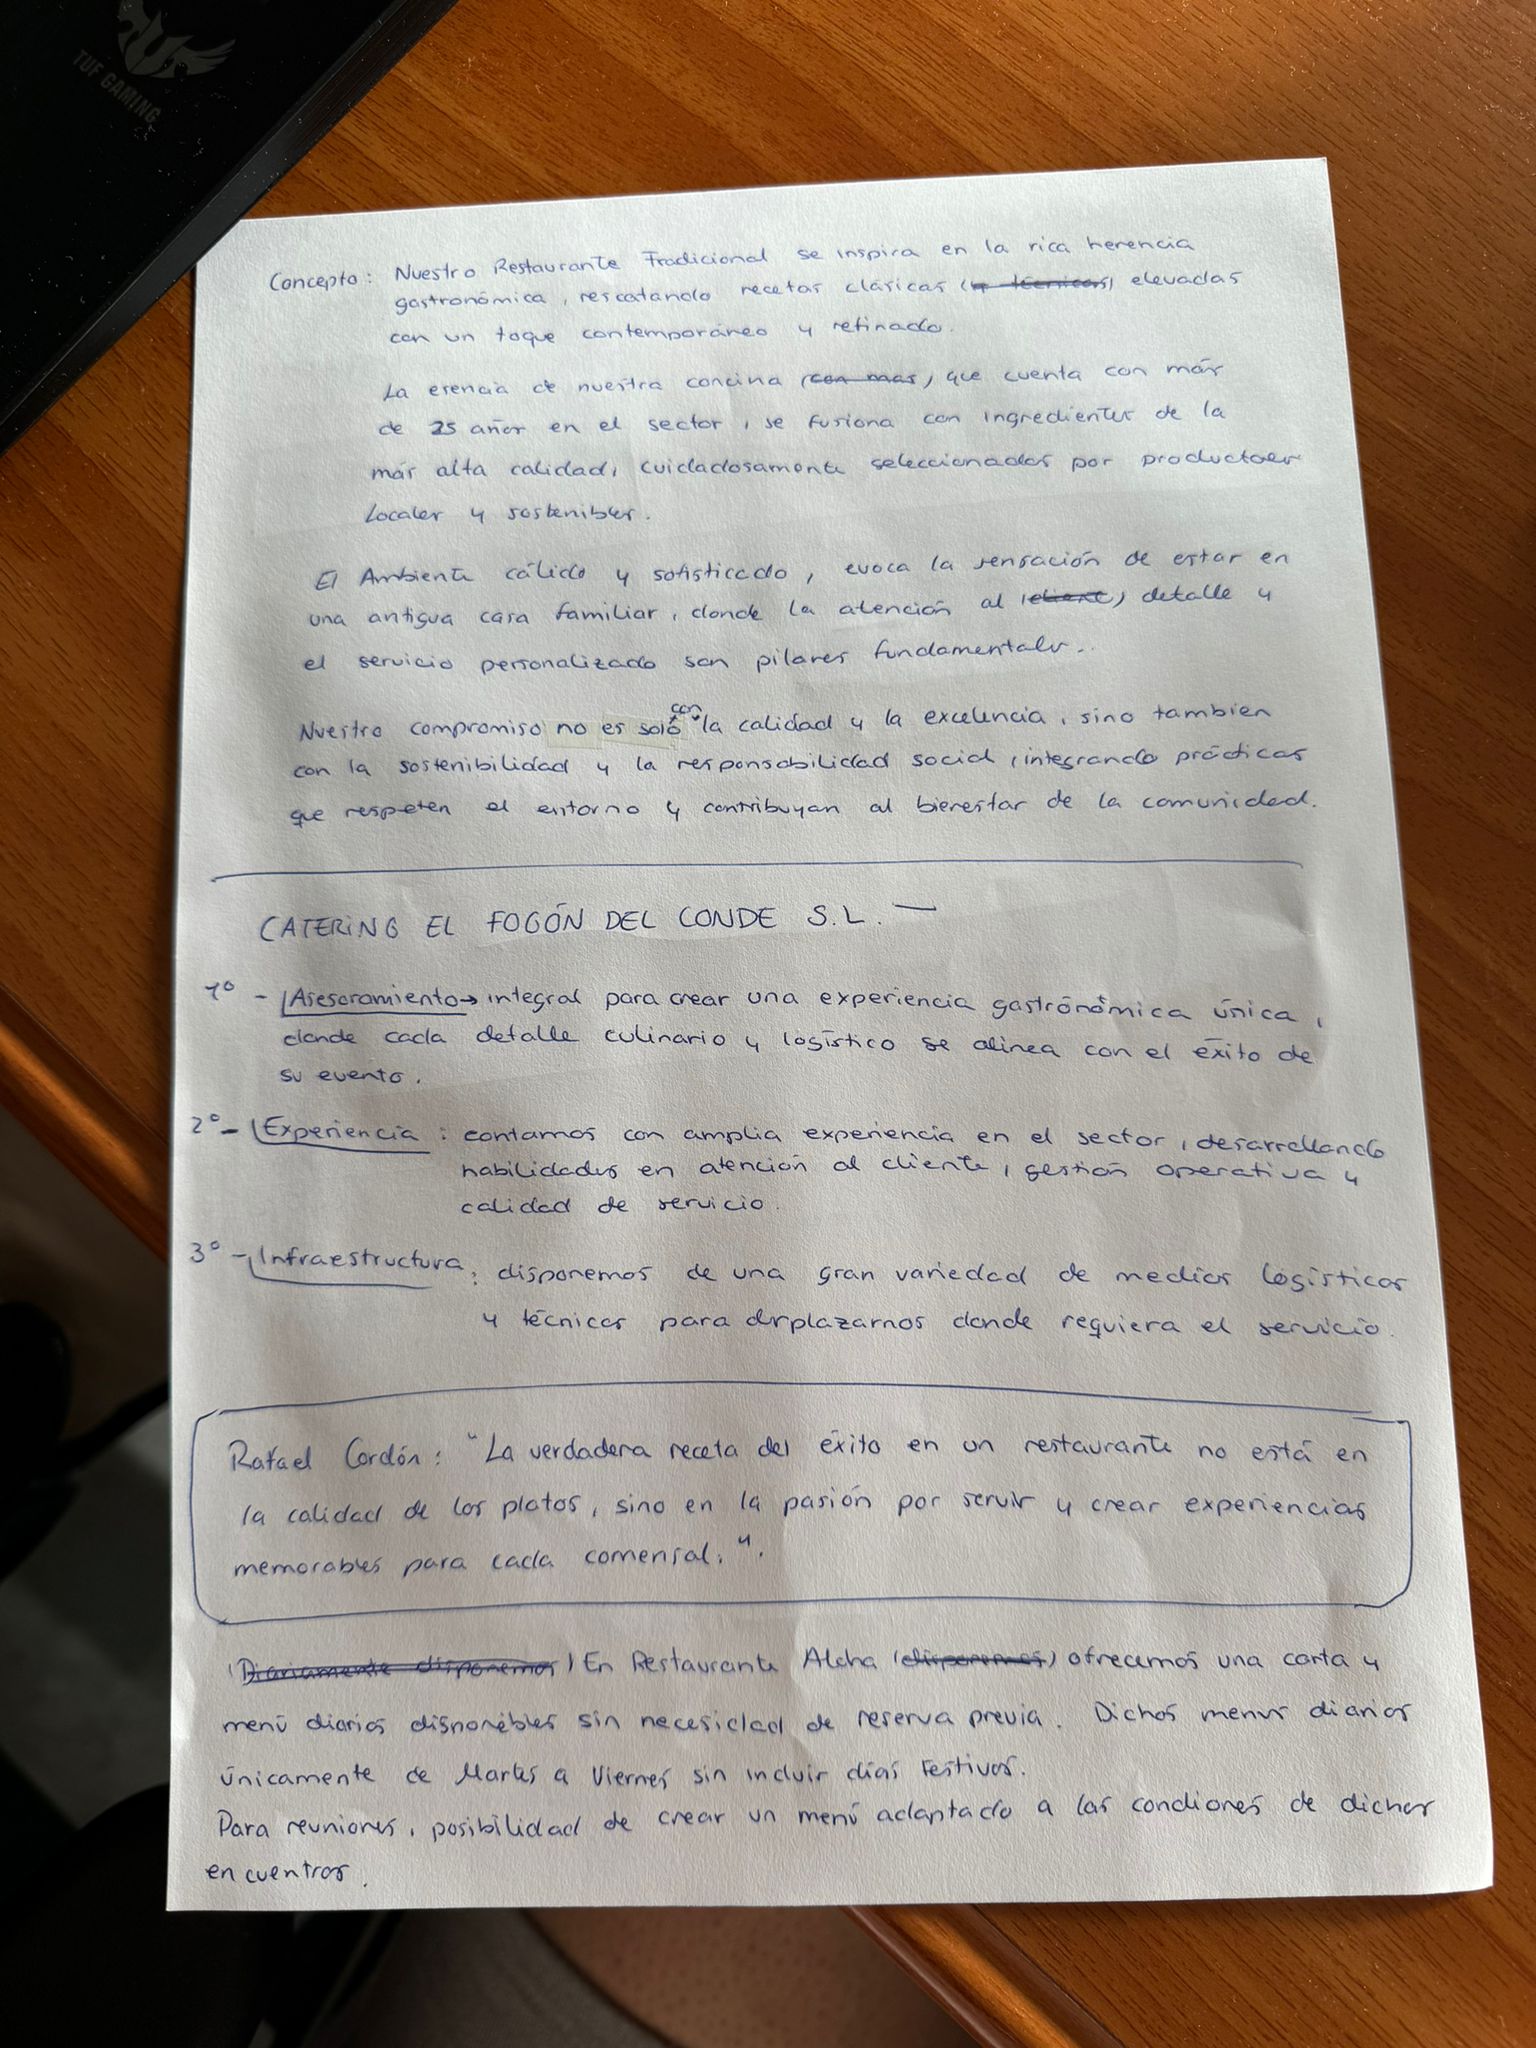 TUF GAMING
Concepto: Nuestro Restaurante Tradicional se inspira en la rica herencia
gastronómica, rescatando recetas clásicas (y técnicas) elevadas
con un toque contemporáneo y refinado.
La esencia de nuestra concina (con mas), que cuenta con más
de 25 años en el sector, se fusiona con ingredientes de la
más alta calidad, cuidadosamente seleccionados por productoes
locales y sostenibles.
El Ambiente cálido y sofisticado, evoca la sensación de estar en
una antigua casa familiar, donde la atención al (client) detalle y
el servicio personalizado son pilares fundamentales..
con
Nuestro compromiso no es soló la calidad y la excelencia, sino tambien
con la sostenibilidad y la responsabilidad social, integrando prácticas
que respeten el entorno y contribuyan al bienestar de la comunidad.
CATERING EL FOGÓN DEL CONDE S.L. —
1º - Asesoramiento → integral para crear una experiencia gastrónómica única,
donde cada detalle culinario y logístico se alinea con el éxito de
su evento.
2º - Experiencia: contamos con amplia experiencia en el sector, desarrollando
habilidades en atención al cliente, gestión operativa y
calidad de servicio.
3º - Infraestructura: disponemos de una gran variedad de medios logísticos
y técnicos para desplazarnos donde requiera el servicio.
Rafael Cordón: "La verdadera receta del éxito en un restaurante no está en
la calidad de los platos, sino en la pasión por servir y crear experiencias
memorables para cada comensal.".
(Diariamente disponemos) En Restaurante (disponemos) ofrecemos una carta y
menú diarios disponibles sin necesidad de reserva previa. Dichos menus diarios
únicamente de Martes a Viernes sin incluir días Festivos.
Para reuniones, posibilidad de crear un menú adaptado a las condiones de dichos
encuentros.